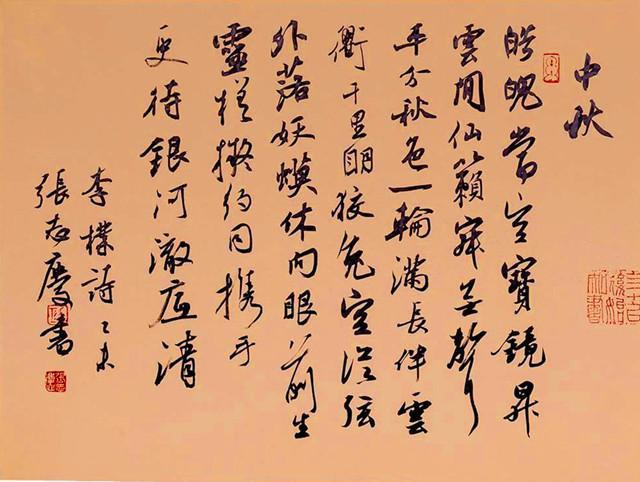 中秋
皓魄當空寶鏡昇
雲間仙籟寂無聲
平分秋色一輪滿長伴雲
衢千里明狡兔空從弦
外落妖蟆休向眼前生
靈槎擬約同携手
更待銀河澈底清
李樸詩乙未
張志慶書